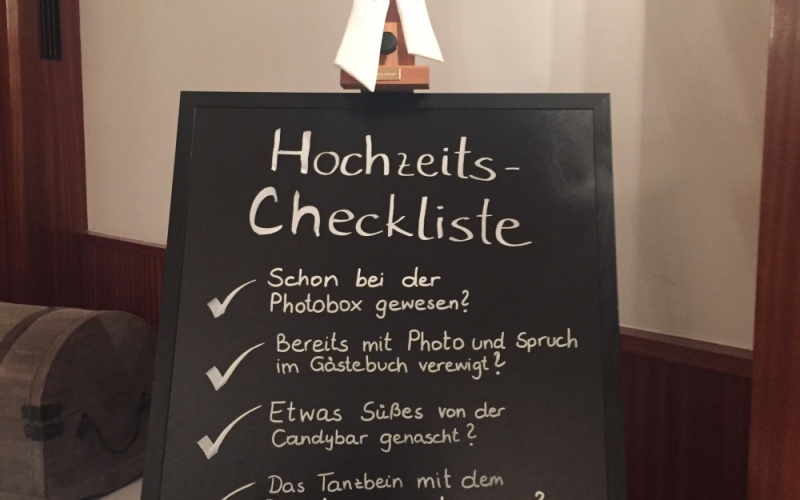 Hochzeits-
Checkliste
Schon bei der
Photobox gewesen?
Bereits mit Photo und Spruch
im Gästebuch verewigt?
Etwas Süßes von der
Candybar genascht?
Das Tanzbein mit dem